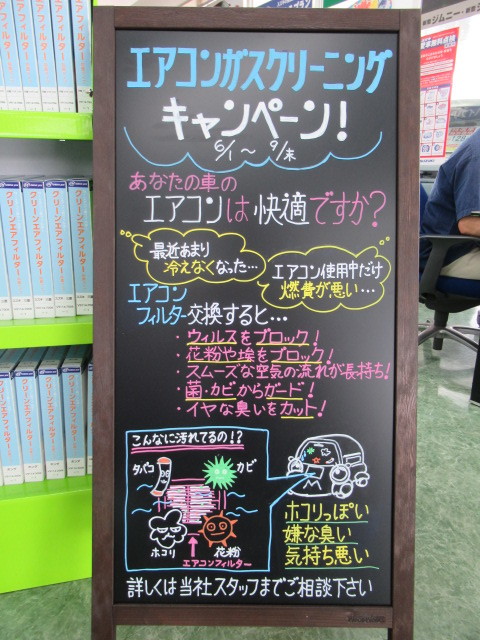 エアコンガスクリーニング
キャンペーン!
6/1〜9/末
あなたの車の
エアコンは快適ですか?
最近あまり
冷えなくなった…
エアコン使用中だけ
燃費が悪い…
エアコン
フィルター交換すると…
・ウィルスをブロック!
・花粉や埃をブロック!
・スムーズな空気の流れが長持ち!
・菌・カビからガード!
・イヤな臭いをカット!
こんなに汚れてるの!?
タバコ
カビ
ホコリ
花粉
エアコンフィルター
ホコリっぽい
嫌な臭い
気持ち悪い
詳しくは当社スタッフまでご相談下さい
クリーンエアフィルター
クリーンエアフィルター
クリーンエアフィルター
クリーンエアフィルター
ジムニー